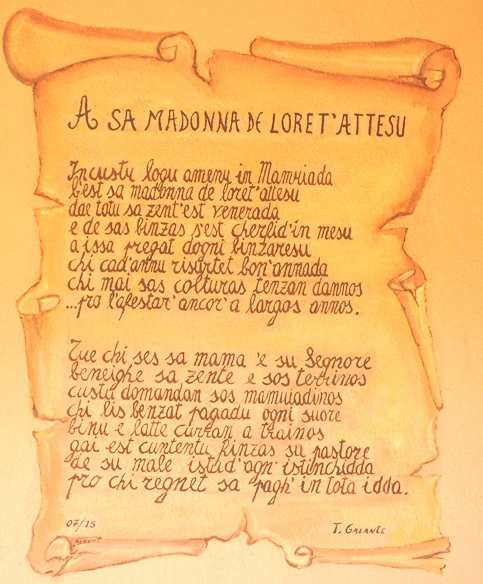 A SA MADONNA DE LORET'ATTESU
In custu logu amenu in Mamujada
b'est sa madonna de loret'attesu
dae totu sa zent'est venerada
e de sas binzas s'est cherfid'in mesu
a issa pregat dogni binzaresu
chi cad'annu risurtet bon'annada
chi mai sas colturas tenzan dannos
...pro l'afestar'ancor'a largos annos.
Tue chi ses sa mama 'e su Segnore
beneighe sa zente e sos terrinos
custu domandan sos mamujadinos
chi lis benzat pagadu ogni suore
binu e latte curran a trainos
gai est cuntentu finzas su pastore
de su male istud'ogn'istinchidda
pro chi regnet sa pagh'in tota idda.
07/15
T. GALANTE